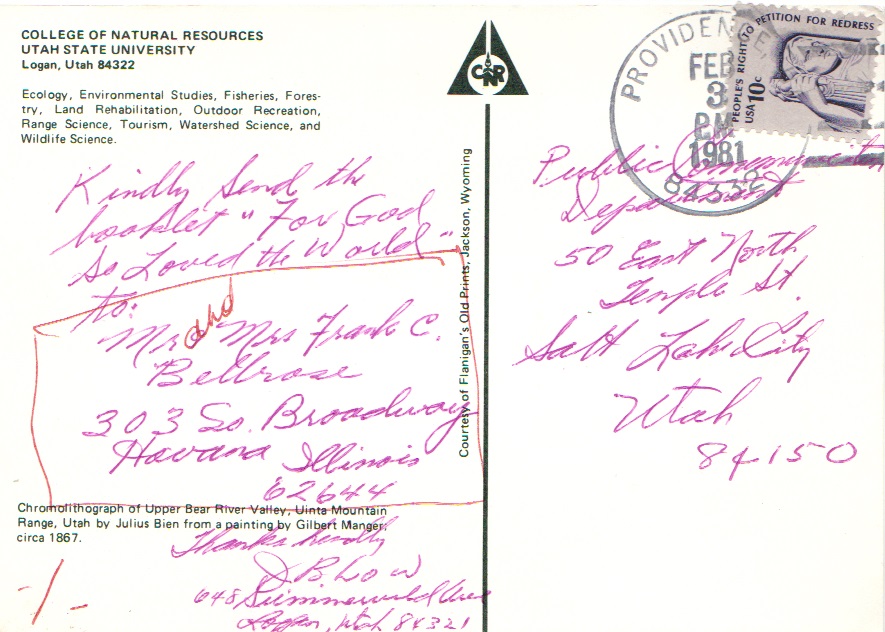 COLLEGE OF NATURAL RESOURCES
UTAH STATE UNIVERSITY
Logan, Utah 84322
Ecology, Environmental Studies, Fisheries, Fores-
try, Land Rehabilitation, Outdoor Recreation,
Range Science, Tourism, Watershed Science, and
Wildlife Science.
Kindly Send the
booklet "For God
So Loved the World"
to:
Mr and Mrs Frank C.
Bellrose
303 So. Broadway
Havana Illinois
62644
Chromolithograph of Upper Bear River Valley, Uinta Mountain
Range, Utah by Julius Bien from a painting by Gilbert Manger,
circa 1867.
Thanks kindly
J B. Low
648 Summerwild Ave
Logan, Utah 84321
CNR
Courtesy of Flanigan's Old Prints, Jackson, Wyoming
PROVIDENCE
FEB
3
PM
1981
84332
PETITION FOR REDRESS
PEOPLE'S RIGHT TO
USA 10c
Public Communication
Department
50 East North
Temple St.
Salt Lake City
Utah
84150